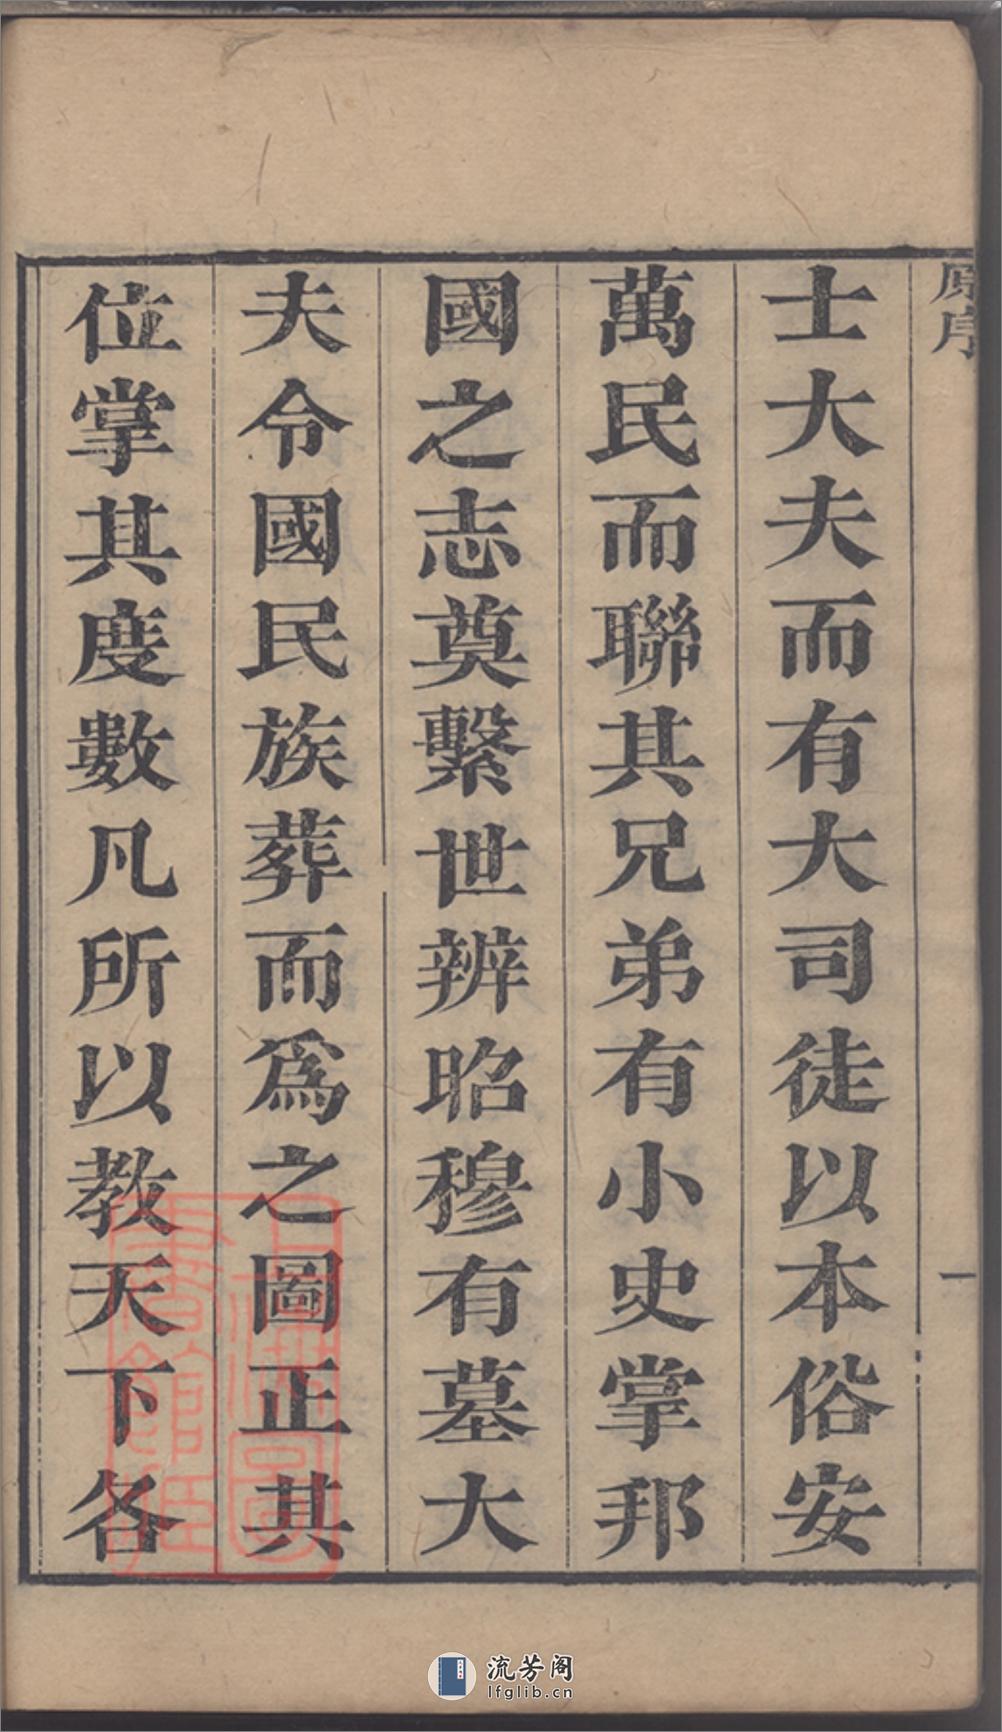 原序
一
士大夫而有大司徒以本俗安
萬民而聯其兄弟有小史掌邦
國之志奠繫世辨昭穆有墓大
夫令國民族葬而爲之圖正其
位掌其度數凡所以教天下各
流芳阁
lfglib.cn